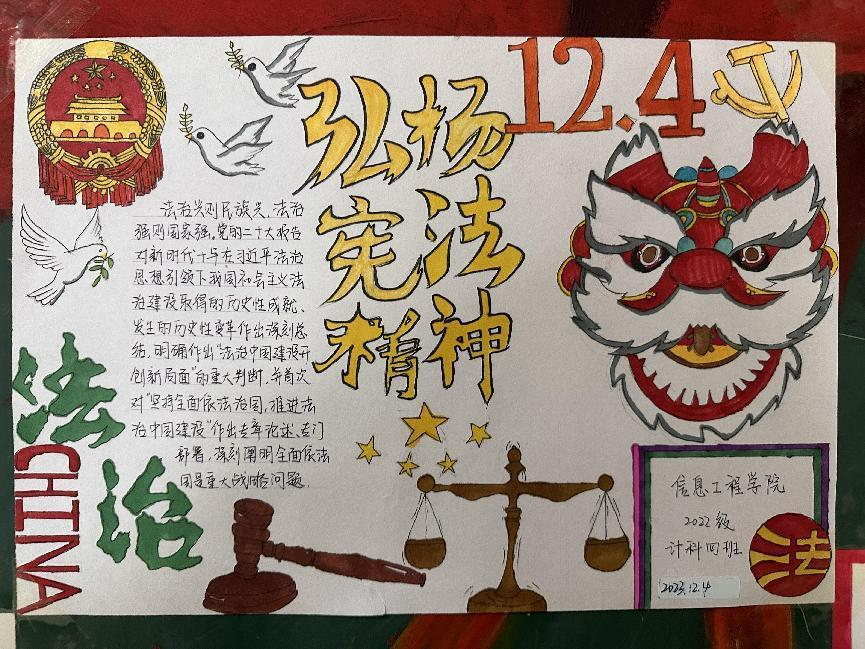 12.4
弘扬
宪法
精神
法治兴则民族兴,法治
强则国家强。党的二十大报告
对新时代十年在习近平法治
思想引领下我国社会主义法
治建设取得的历史性成就、
发生的历史性变革作出深刻总
结,明确作出“法治中国建设开
创新局面”的重大判断,并首次
对“坚持全面依法治国,推进法
治中国建设”作出专章论述、专门
部署,深刻阐明全面依法
国是重大战略问题.
法治
CHINA
信息工程学院
2022级
计科四班
2023.12.4
法